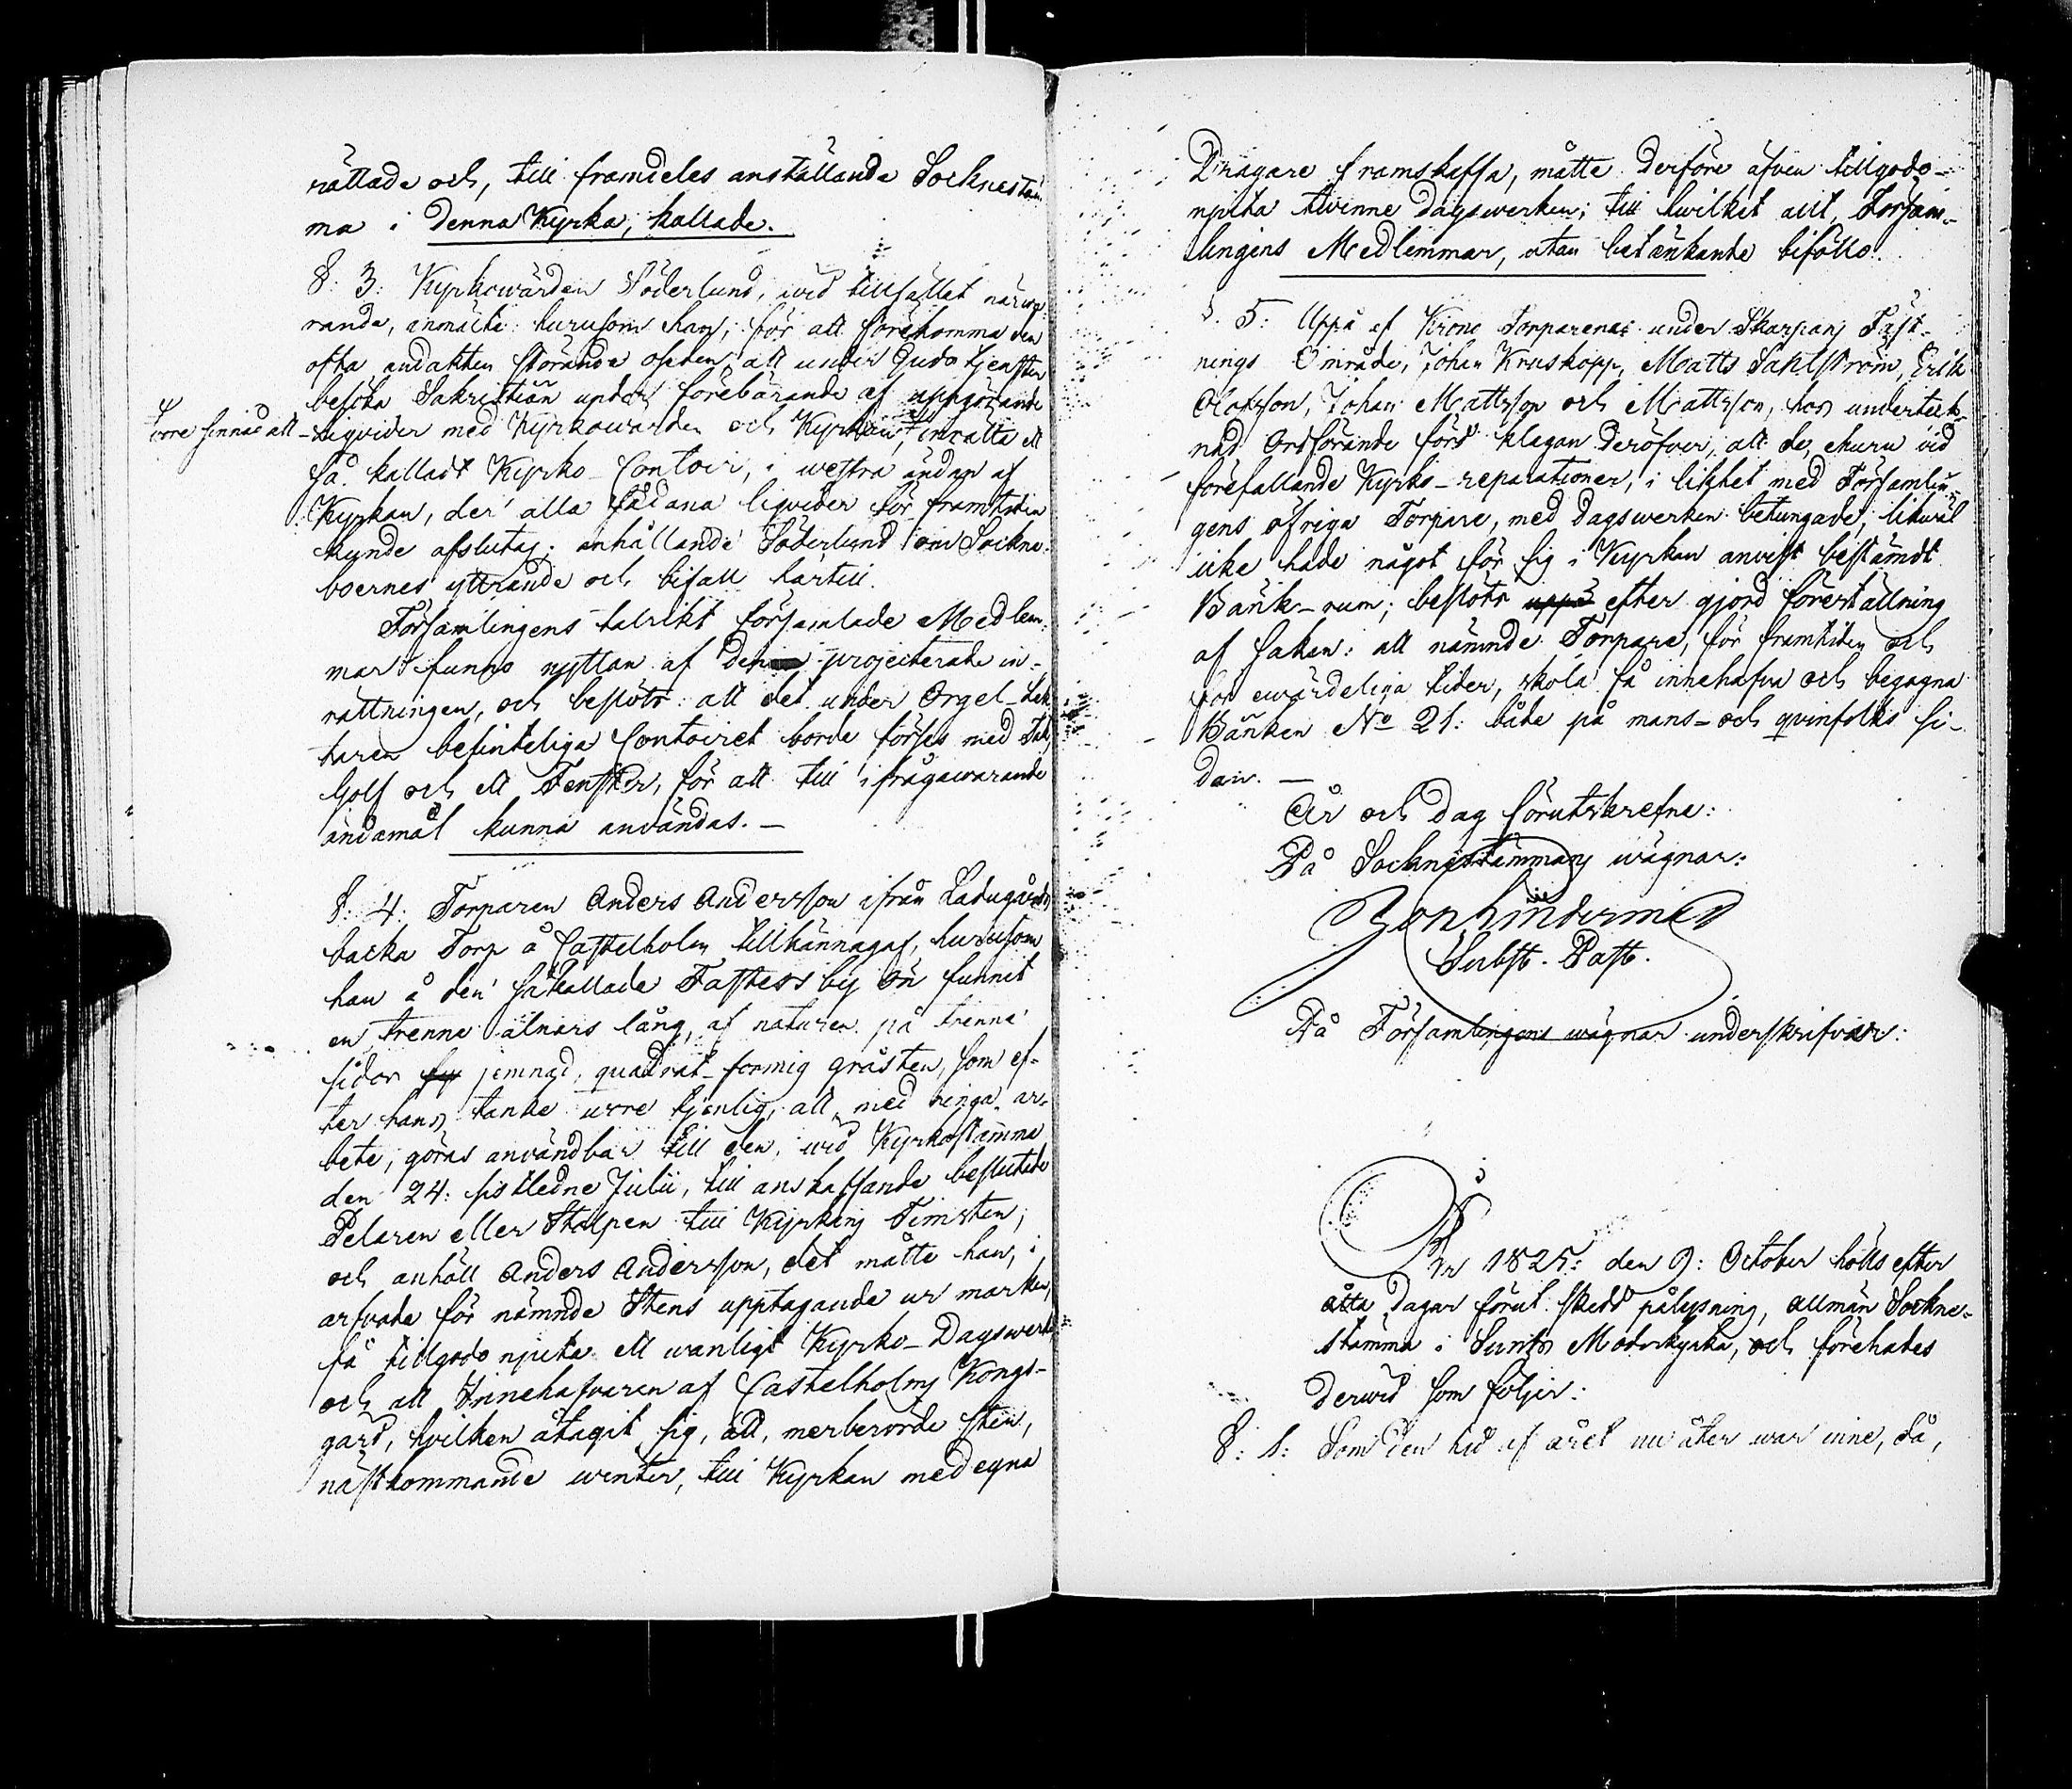 rättade och, till framdeles anställande Socknestäm-
ma i denna Kyrka, kallade.
§: 3: Kyrkowärden Söderlund, wid tillfället närwa-
rande, anmälte: hurusom han, för att förekomma den
ofta andakten störande oseden, att under Gudstjensten
besöka Sakristian under förebärande af uppgörande
liqvider med Kyrkowärden och Kyrkan, inrätta ett
wore sinnad att
så kalladt Kyrko-Contoir, i westra ändan af
Kyrkan, der alla sådana liqvider för framtiden
kunde afslutas; anhållande Söderlund om Sockne-
boernes yttrande och bifall härtill.
Församlingens talrikt församlade Medlem-
mar funno nyttan af den projecterade in-
rättningen, och beslöts: att det under Orgel-läk-
taren befinteliga Contoiret borde förses med Tak,
Golf och ett Fenster, för att till ifrågawarande
ändamål kunna användas. —
§: 4: Torparen Anders Andersson ifrån Ladugårds
backa Torp å Castelholm tillkännagaf, hurusom
han å den såkallade Fastess by Ön funnit
en trenne alnars lång, af naturen på trenne
sidor jemnad, quadrat-formig gråsten, som ef-
ter hans tanke wore tjenlig, att med ringa ar-
bete, göras användbar till den, wid Kyrkostämma
den 24: sistledne Julii, till anskaffande beslutade
Pelaren eller Stolpen till Kyrkans Timsten;
och anhöll Anders Andersson, det måtte han, i
arfvode för nämnde Stens upptagande ur marken,
få tillgodo njuta ett wanligt Kyrko-Dagswerke
och att Innehafvaren af Castelholms Kongs-
gård, hvilken åtagit sig, att, merberörde sten,
nästkommande winter, till Kyrkan med egna
Dragare framskaffa, måtte derföre äfven tillgodo-
njuta twenne dagswerken; till hwilket allt, Försam-
lingens Medlemmar, utan betänkande biföllo.
§: 5: Uppå af Krono Torparenas under Skarpans Fäst-
nings Område, Johan Kruskopp, Matts Sahlström, Erik
Olofsson, Johan Mattsson och Mattsson, hos underteck-
nad Ordförande förd klagan deröfver, att de, ehuru wid
förefallande Kyrko-reparationer, i likhet med Församlin-
gens öfriga Torpare, med dagswerken betungade, likwäl
icke hade något för sig i Kyrkan anvist bestämdt
Bänk-rum; beslöts uppå efter gjord föreställning
af saken: att nämnde Torpare, för framtiden och
för ewärdeliga tider, skola få innehafva och begagna
Bänken No 21: både på mans- och qvinfolks si-
dan. —
År och dag förutskrefne:
På Socknestämmans wägnar:
Subst. Past.
På Församlingens wägnar underskrifves:
År 1825: den 9: October hölls efter
åtta dagar förut skedd pålysning, allmän Sockne-
stämma i Sunds Moderkyrka, och förehades
derwid som följer:
§: 1: Som den tid af året nu åter war inne, då,